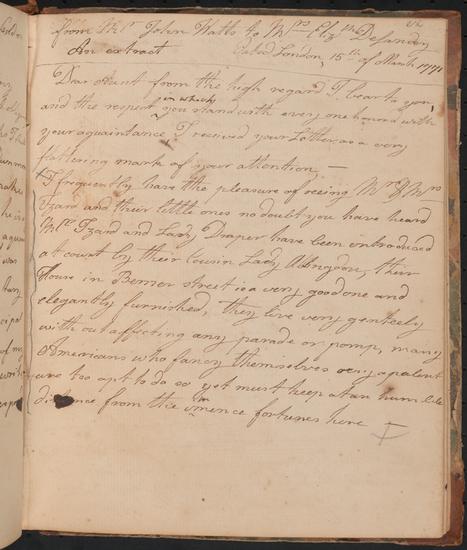 from Mr John Watts to Mrs Elizth DeLancey
An extract Dated London 15th of March 1771
Dear Aunt from the high regard I bear to you,
and the respect in which you stand with every one honored with
your aquaintance I received your Letter as a very
flattering mark of your attention, —
I frequently have the pleasure of seeing Mr & Mrs
Izard and their little ones no doubt you have heard
Mrs Izard and Lady Draper have been introduced
at court by their Cousin Lady Abingdon, their
House in Berner street is a very good one and
elegantly furnished, they live very genteely
with out affecting any parade or pomp, many
Americans who fancy themselves very opulent
are too apt to do so yet must keep at an humble
distance from the imence fortunes here —